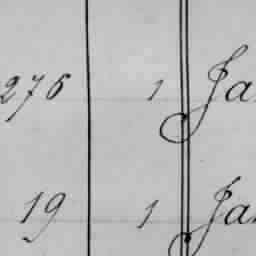 276 1 Ja
19 1 Ja